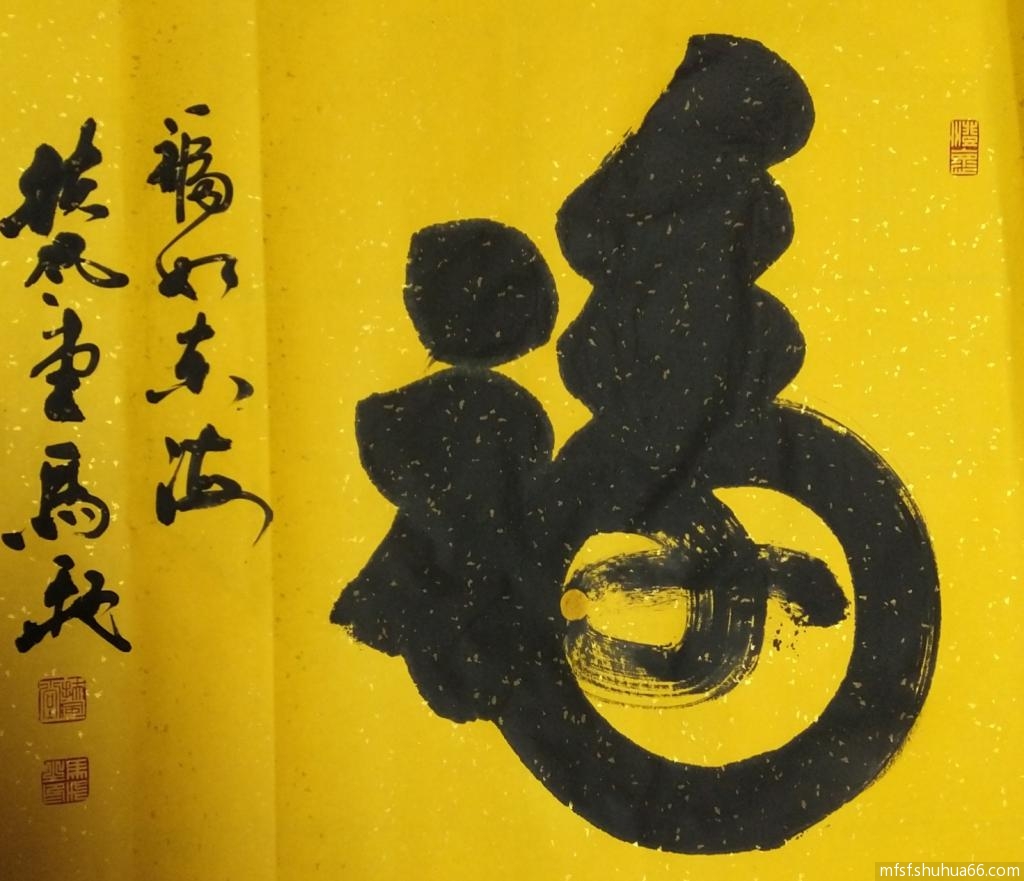 福
福如东海
扶风堂马驰
mfsf.shuhua66.com